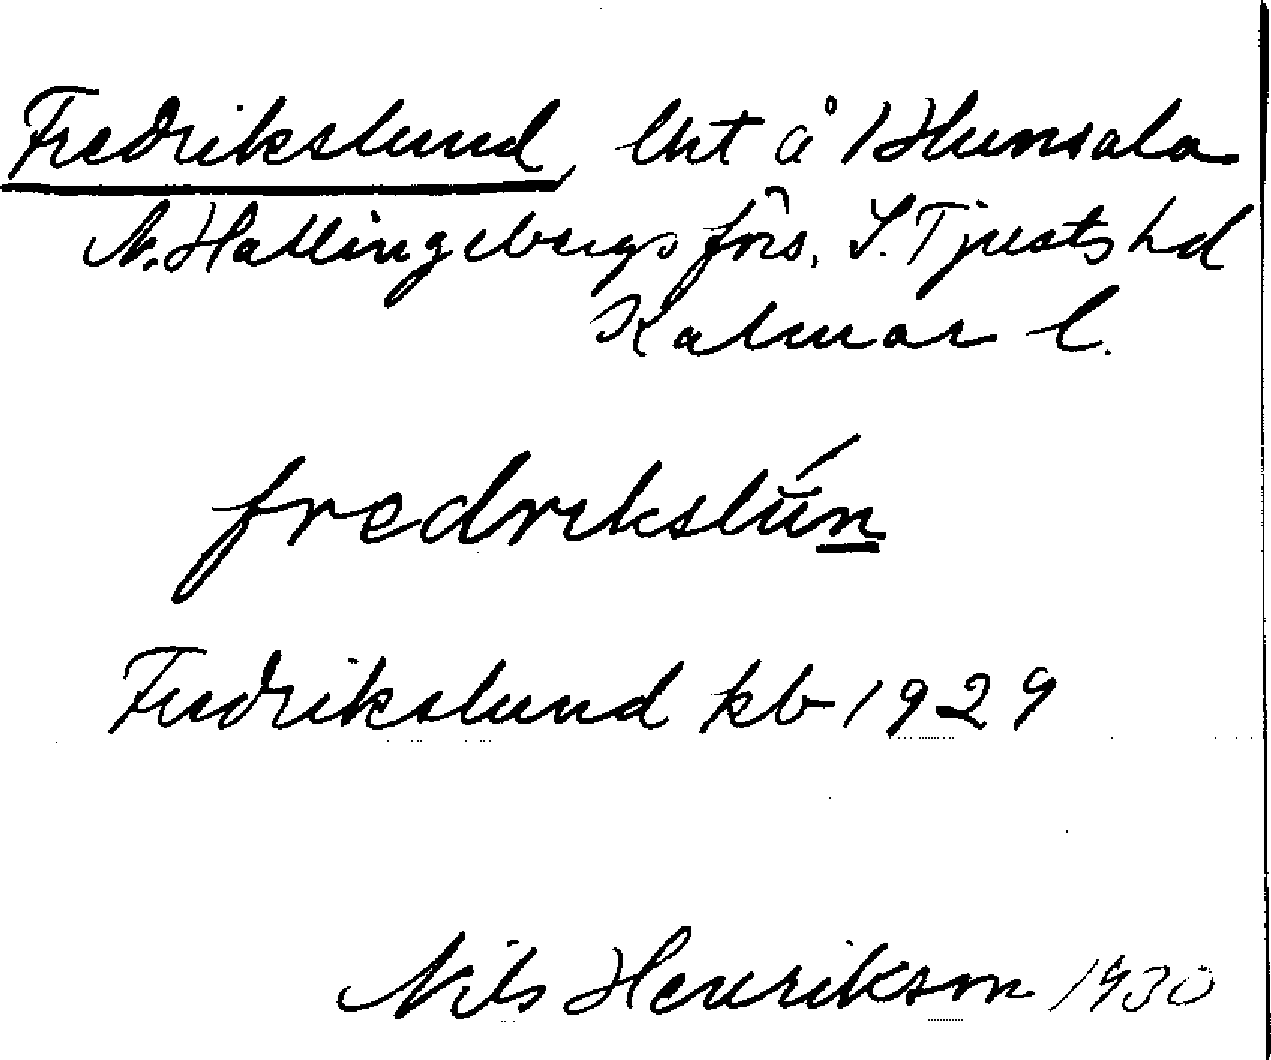 Fredrikslund, lht å Hunsala
N. Hallingebergs förs, S. Tjusts hd
Kalmar l.
fredrikslŭ́n
Fredrikslund kb 1929
Nils Henrikson 1930